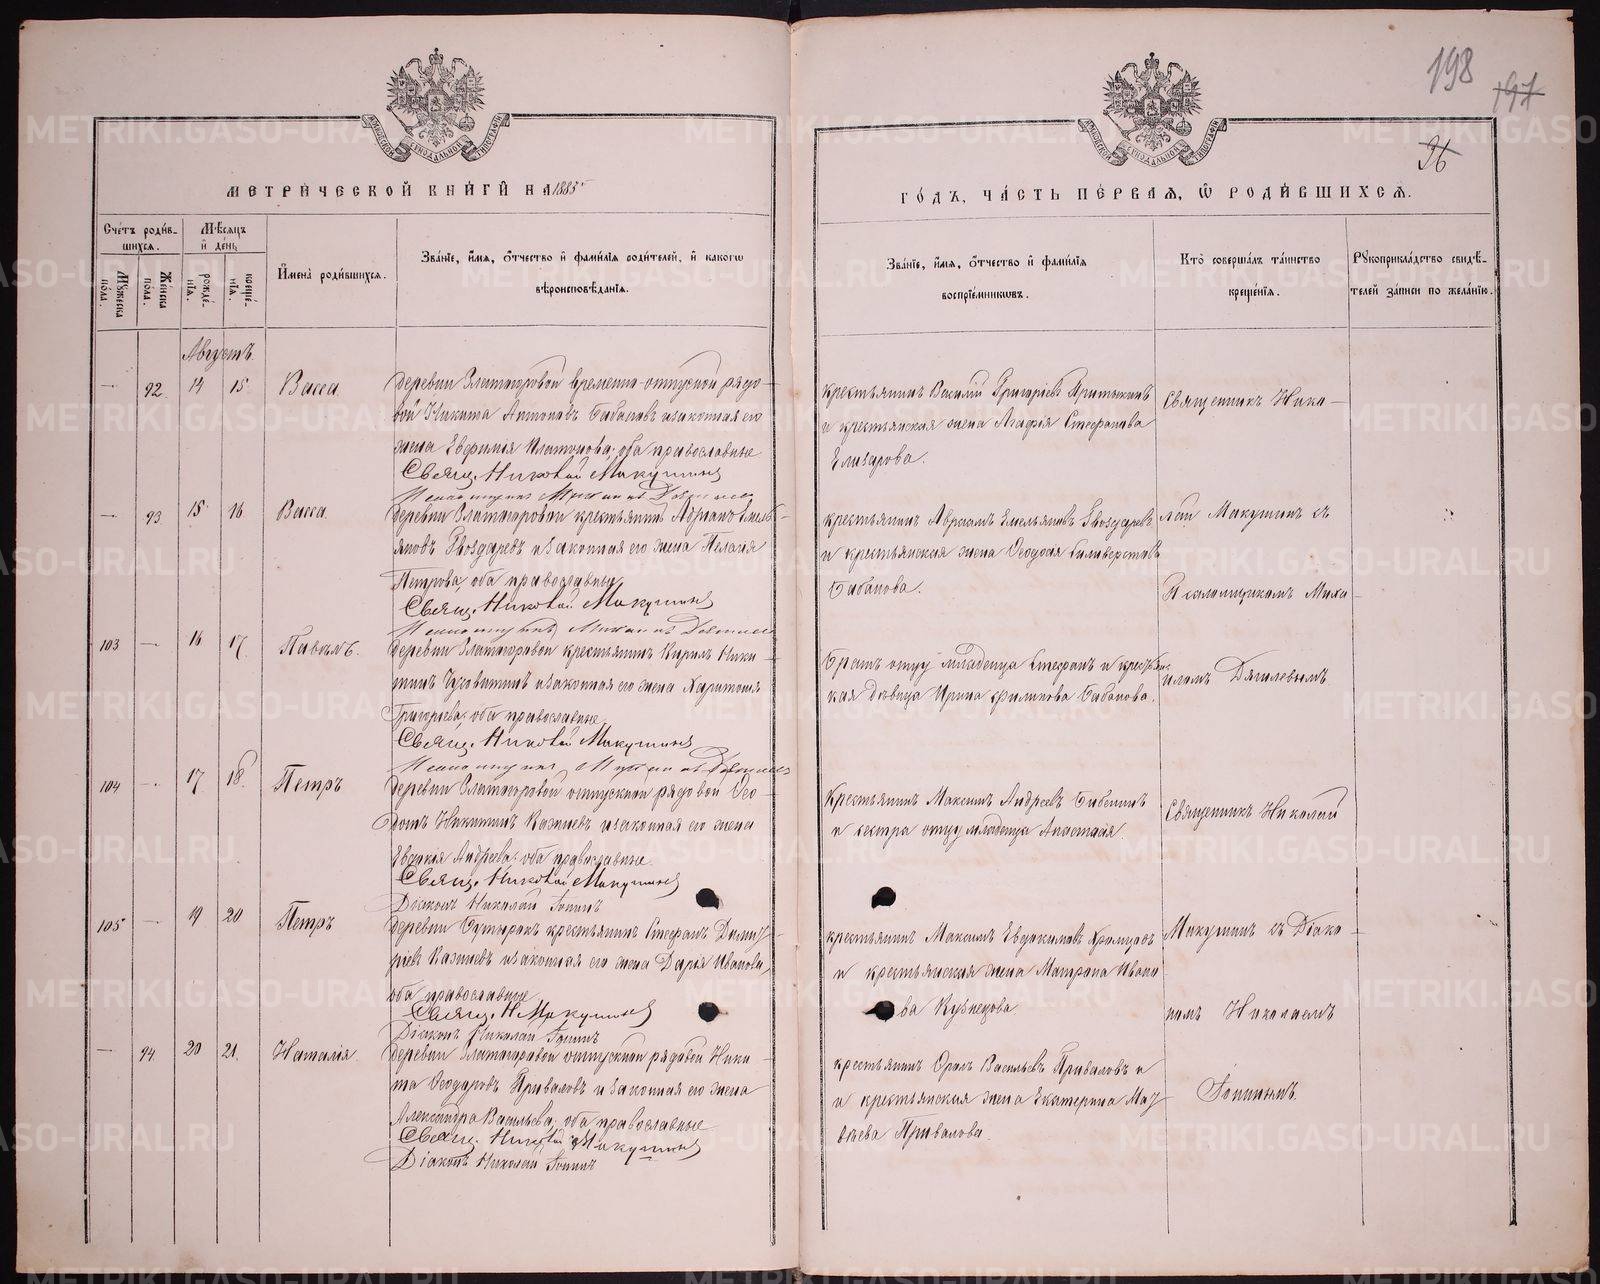 198
197
96
МЕТРИЧЕСКОЙ КНИГИ НА 1885
ГОДЪ, ЧАСТЬ ПЕРВАЯ, Ѡ РОДИВШИХСЯ.
Счетъ родив-
шихся.
Мѣсяцъ
и день
Мужеска
пола.
Женска
пола.
рожде-
нія.
креще-
нія.
Имена родившихся.
Званіе, имя, отчество и фамилія родителей, и какогѡ
вѣроисповѣданія.
Званіе, имя, отчество и фамилія
воспріемниковъ.
Кто совершалъ таинство
крещенія.
Рукоприкладство свидѣ-
телей записи по желанію.
Августъ.
— 92. 14 15. Васса.
деревни Златогоровой временно-отпускной рядо-
вой Никита Антоновъ Бабановъ и законная его
жена Евфимія Платонова, оба православные
Свящ. Николай Макушинъ
крестьянинъ Василій Григорьевъ
и крестьянская жена Агафія Стефанова
Елизарова.
Священникъ Нико-
— 93 15 16 Васса.
деревни Златогоровой крестьянинъ Адріанъ Емель-
яновъ Гвоздаревъ и законная его жена Пелагія
Петрова, оба православные
Свящ. Николай Макушинъ
крестьянинъ Авраамъ Емельяновъ Гвоздаревъ
и крестьянская жена Ѳеодосія Селиверстова
Бабанова.
лай Макушинъ съ
Псаломщикомъ Миха-
103 — 16 17. Павелъ.
деревни Златогоровой крестьянинъ Кирилъ Ники-
тинъ и законная его жена Харитонія
Григорьева, оба православные
Свящ. Николай Макушинъ
Братъ отцу младенца Стефанъ и крестьян-
кая дѣвица Ирина Филипова Бабанова.
иломъ Дягилевымъ
104 — 17 18. Петръ
деревни Златогоровой отпускной рядовой Ѳео-
дотъ Никитинъ и законная его жена
Евдокія Андреева, оба православные.
Свящ. Николай Макушинъ
Діаконъ Николай
Крестьянинъ Максимъ Андреевъ
и сестра отцу младенца Анастасія.
Священникъ Николай
105 — 19 20 Петръ
деревни крестьянинъ Стефанъ Димит-
ріевъ и законная его жена Дарія Иванова,
оба православные
Свящ. Н. Макушинъ
Діаконъ Николай
крестьянинъ Максимъ Евдокимовъ
и крестьянская жена Матрона Ивано
ва Кузнецова.
Макушинъ съ Діако-
номъ Николаемъ
— 94 20 21. Наталія
деревни Златогоровой отпускной рядовой Ники-
та Ѳеодоровъ Приваловъ и законная его жена
Александра Васильева, оба православные
Свящ. Николай Макушинъ
Діаконъ Николай
крестьянинъ Васильевъ Приваловъ и
и крестьянская жена Екатерина Мат-
вѣева Привалова.